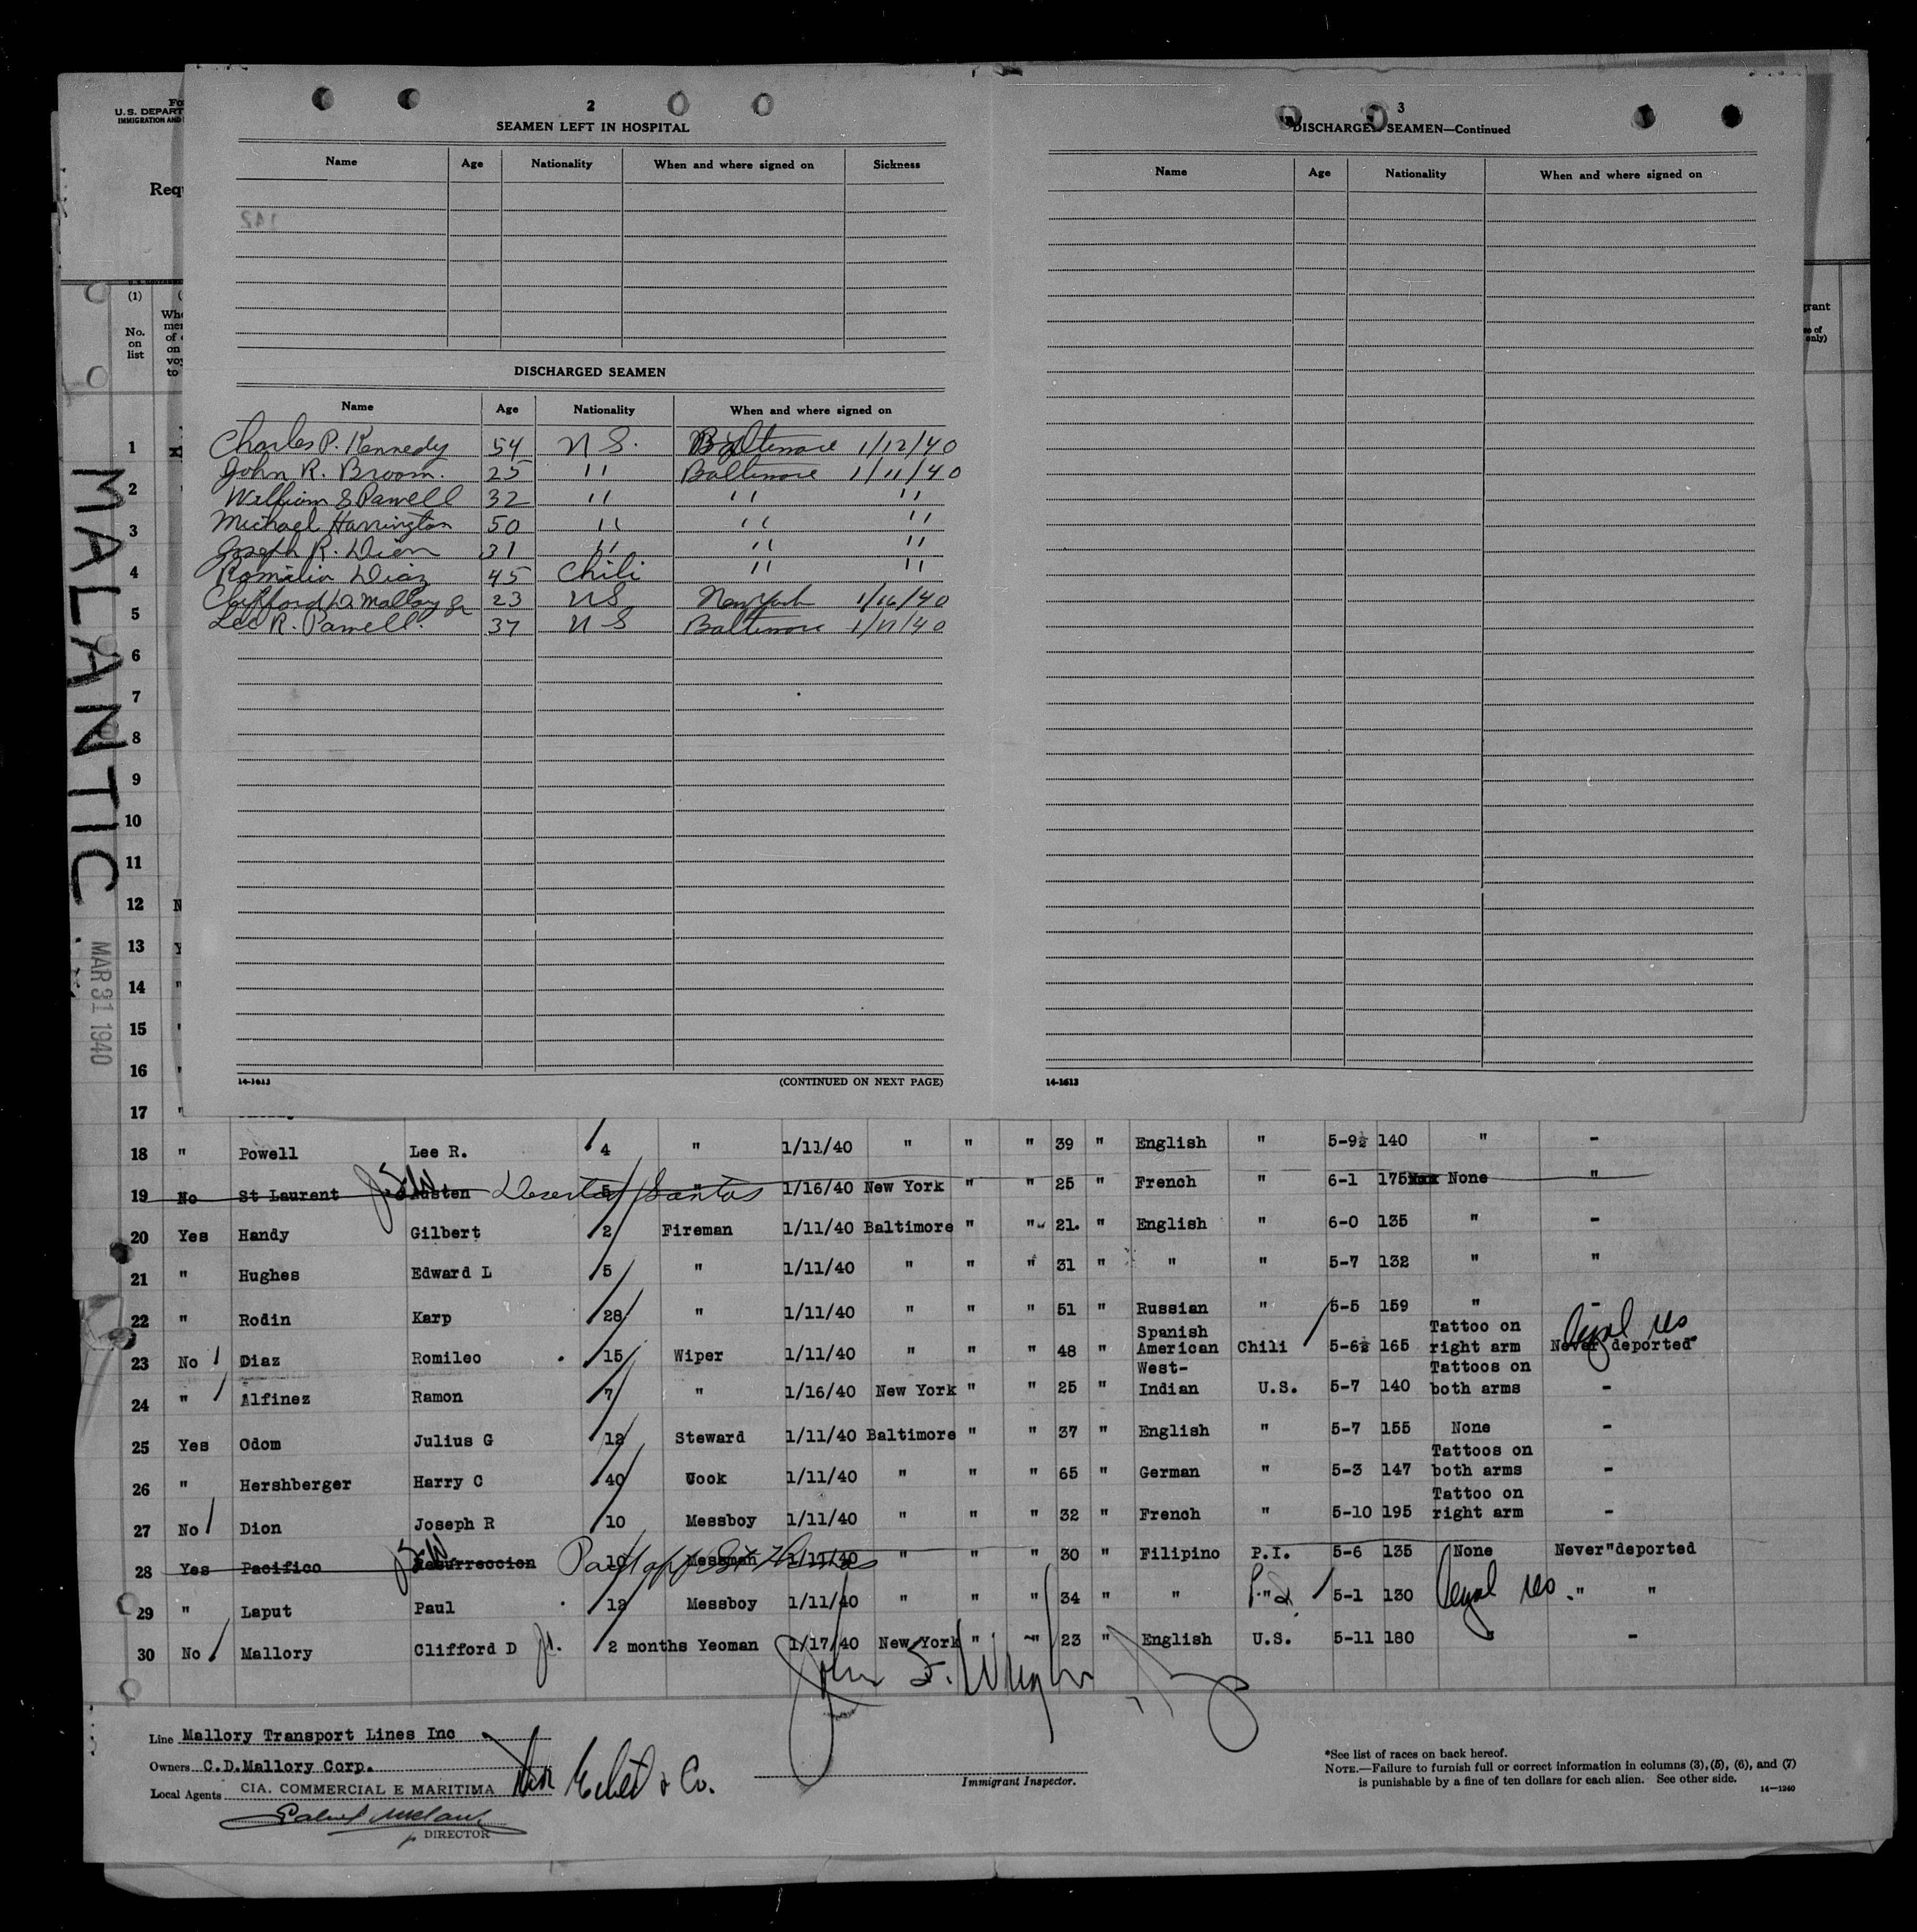 For
U.S. DEPART
IMMIGRATION AND
Requ
2
SEAMEN LEFT IN HOSPITAL
Name Age Nationality When and where signed on Sickness
DISCHARGED SEAMEN
Name Age Nationality When and where signed on
Charles P. Kennedy 54 U S. Baltimore 1/12/40
John R. Broom. 25 " Baltimore 1/11/40
William S Powell 32 " " "
Michael Harrington 50 " " "
Joseph R. Dion 31 " " "
Romilio Diaz 45 Chili " "
Clifford D Mallory Jr 23 U S New York 1/16/40
Lee R. Powell. 37 U S Baltimore 1/11/40
14-1613 (CONTINUED ON NEXT PAGE)
3
DISCHARGED SEAMEN—Continued
Name Age Nationality When and where signed on
14-1613
(1)
No. on list
1
2
3
4
5
6
7
8
9
10
11
12 N
13 Y
14 "
15 "
16 "
17 "
MALANTIC
MAR 31 1940
18 " Powell Lee R. 4 " 1/11/40 " " " 39 " English " 5-9½ 140 " -
19 No St Laurent JSW Austen Deserted Santos 5 " 1/16/40 New York " " 25 " French " 6-1 175 None "
20 Yes Handy Gilbert 2 Fireman 1/11/40 Baltimore " " 21. " English " 6-0 135 " -
21 " Hughes Edward L 5 " 1/11/40 " " " 31 " " " 5-7 132 " "
22 " Rodin Karp 28 " 1/11/40 " " " 51 " Russian " 5-5 159 " -
23 No Diaz Romileo 15 Wiper 1/11/40 " " " 48 " Spanish American Chili 5-6½ 165 Tattoo on right arm Never deported legal res.
24 " Alfinez Ramon 7 " 1/16/40 New York " " 25 " West-Indian U.S. 5-7 140 Tattoos on both arms -
25 Yes Odom Julius G 12 Steward 1/11/40 Baltimore " " 37 " English " 5-7 155 None -
26 " Hershberger Harry C 40 Cook 1/11/40 " " " 65 " German " 5-3 147 Tattoos on both arms -
27 No Dion Joseph R 10 Messboy 1/11/40 " " " 32 " French " 5-10 195 Tattoo on right arm -
28 Yes Pacifico JSW Resurreccion Paid off St Thomas 10 Messman 1/11/40 " " " 30 " Filipino P.I. 5-6 135 None Never "deported
29 " Laput Paul 12 Messboy 1/11/40 " " " 34 " " P.I. 5-1 130 Legal res. " "
30 No Mallory Clifford D Jr. 2 months Yeoman 1/17/40 New York " " 23 " English U.S. 5-11 180 " -
Line Mallory Transport Lines Inc
Owners C.D.Mallory Corp.
Local Agents CIA. COMMERCIAL E MARITIMA
& Co.
DIRECTOR
John F.
Immigrant Inspector.
*See list of races on back hereof.
NOTE.—Failure to furnish full or correct information in columns (3), (5), (6), and (7)
is punishable by a fine of ten dollars for each alien. See other side.
14—1240